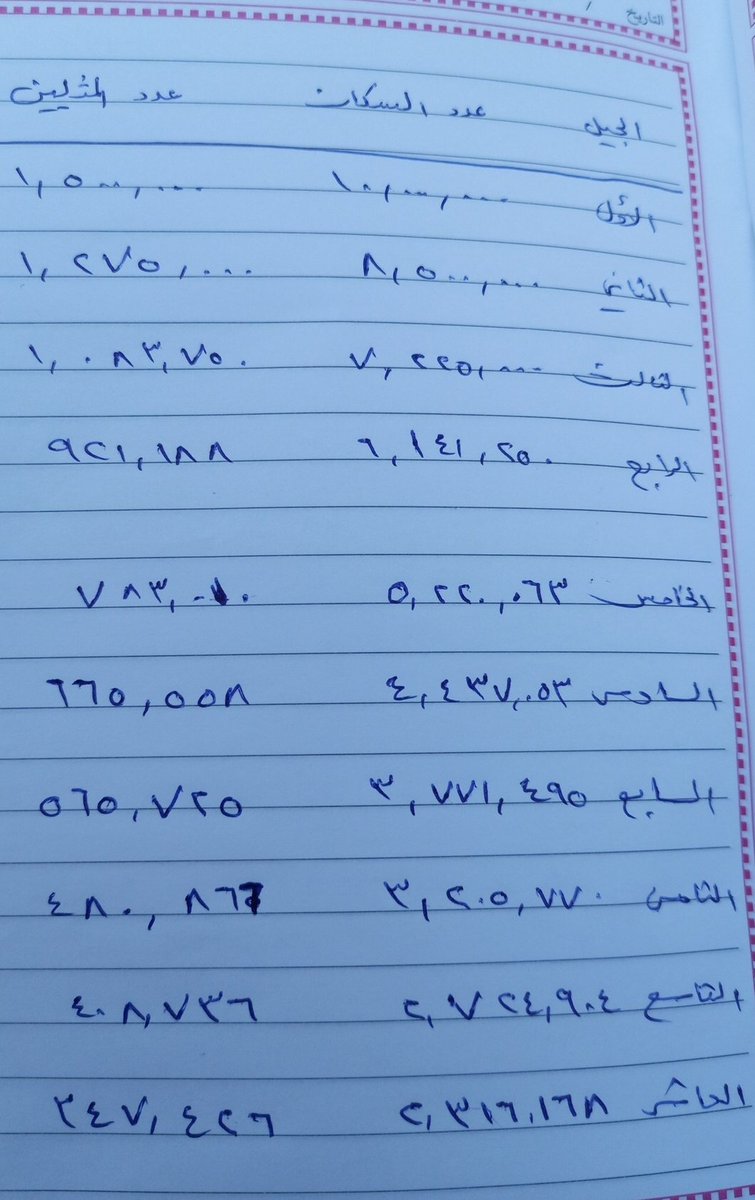 التاريخ /
الجيل عدد السكان عدد المثليين
الأول ١٠,٠٠٠,٠٠٠ ١,٥٠٠,٠٠٠
الثاني ٨,٥٠٠,٠٠٠ ١,٢٧٥,٠٠٠
الثالث ٧,٢٢٥,٠٠٠ ١,٠٨٣,٧٥٠
الرابع ٦,١٤١,٢٥٠ ٩٢١,١٨٨
الخامس ٥,٢٢٠,٠٦٣ ٧٨٣,٠١٠
السادس ٤,٤٣٧,٠٥٣ ٦٦٥,٥٥٨
السابع ٣,٧٧١,٤٩٥ ٥٦٥,٧٢٥
الثامن ٣,٢٠٥,٧٧٠ ٤٨٠,٨٦٦
التاسع ٢,٧٢٤,٩٠٤ ٤٠٨,٧٣٦
العاشر ٢,٣١٦,١٦٨ ٣٤٧,٤٢٦